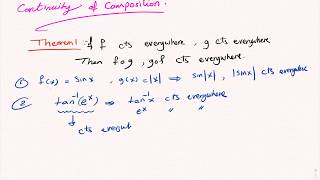 Continuity of Composition.
Theorem: If f cts everywhere, g cts everywhere
Then fog, gof cts everywhere.
① f(x) = Sinx , g(x) = |x| ⟹ sin|x| , |sinx| cts everywhere
② tan⁻¹(eˣ) ⟹ tan⁻¹x cts everywhere
eˣ " "
cts everywh